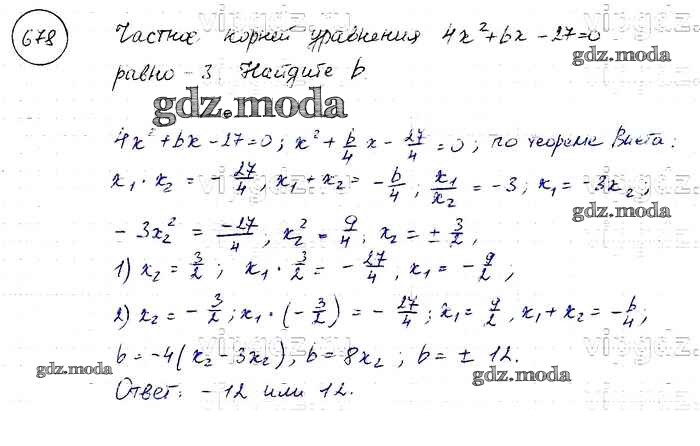 678 Частное корней уравнения 4x²+bx-27=0
gdz.moda
равно -3. Найдите b.
gdz.moda
4x²+bx-27=0; x²+b/4 x-27/4=0; по теореме Виета:
x₁·x₂=-27/4, x₁+x₂=-b/4; x₁/x₂=-3; x₁=-3x₂;
-3x₂²=-27/4; x₂²=9/4; x₂=±3/2,
1) x₂=3/2; x₁·3/2=-27/4, x₁=-9/2,
2) x₂=-3/2; x₁·(-3/2)=-27/4; x₁=9/2, x₁+x₂=-b/4;
b=-4(x₂-3x₂), b=8x₂; b=±12.
gdz.moda
gdz.moda
Ответ: -12 или 12.